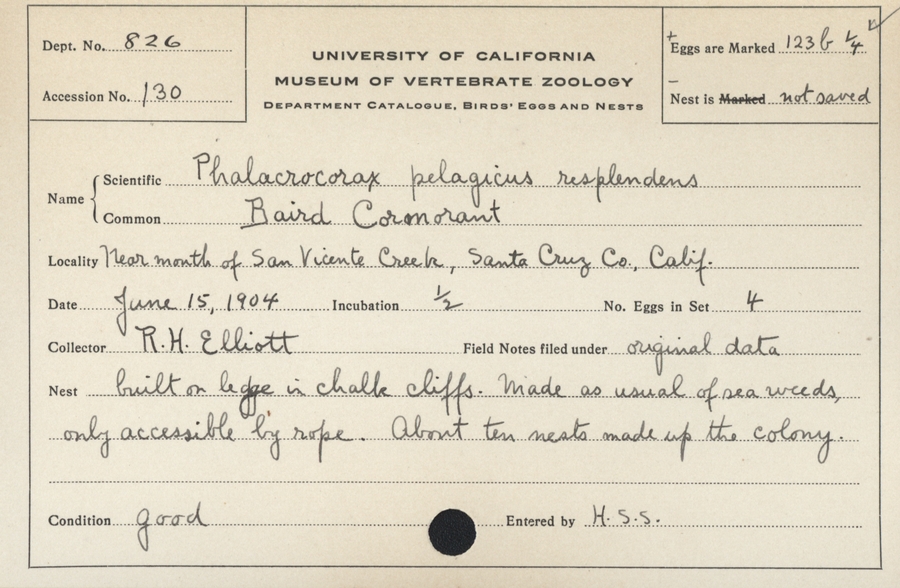 Dept. No. 826
Accession No. 130
UNIVERSITY OF CALIFORNIA
MUSEUM OF VERTEBRATE ZOOLOGY
DEPARTMENT CATALOGUE, BIRDS' EGGS AND NESTS
Eggs are Marked 123b 1/4
Nest is Marked not saved
Name
Scientific Phalacrocorax pelagicus resplendens
Common Baird Cormorant
Locality Near mouth of San Vicente Creek, Santa Cruz Co., Calif.
Date June 15, 1904 Incubation 1/2 No. Eggs in Set 4
Collector R.H. Elliott Field Notes filed under original data
Nest built on ledge in chalk cliffs. Made as usual of sea weeds,
only accessible by rope. About ten nests made up the colony.
Condition good Entered by H.S.S.